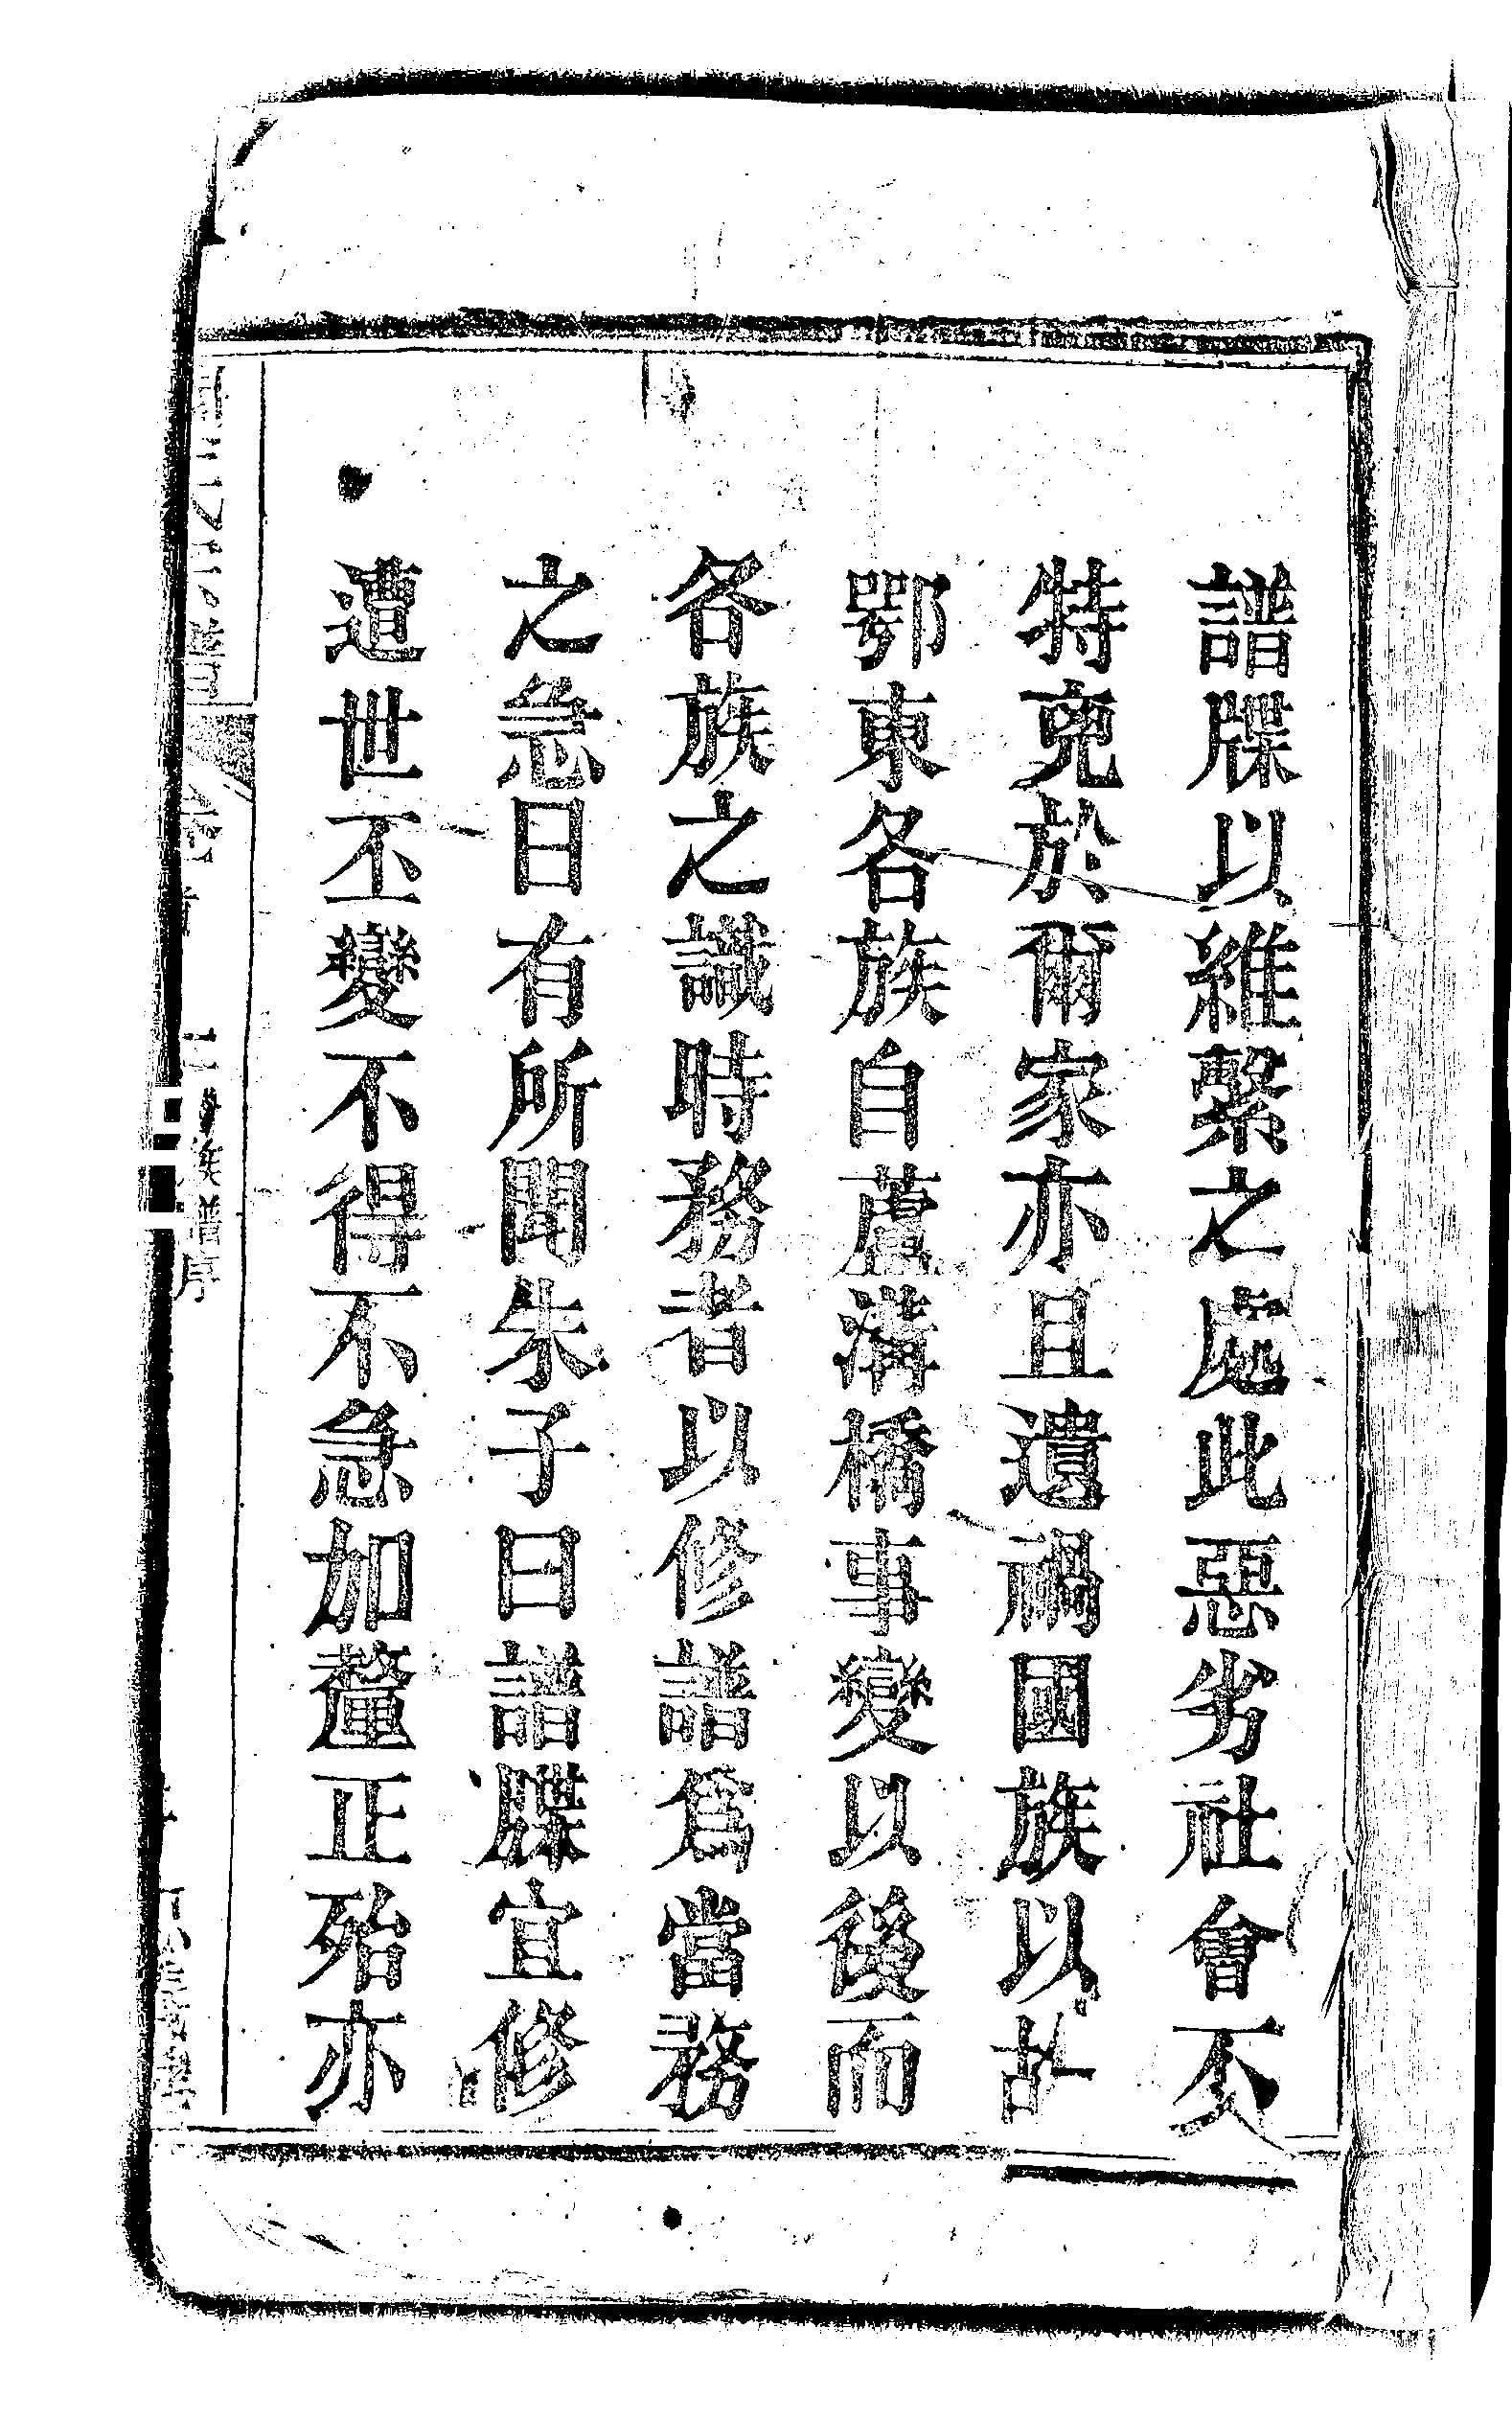 譜牒以維繫之處此惡劣社會不
特兇於爾家亦且遺禍國族以故
鄂東各族自蘆溝橋事變以後而
各族之識時務者以修譜爲當務
之急曰有所聞朱子曰譜牒宜修
遭世丕變不得不急加釐正殆亦
族譜序